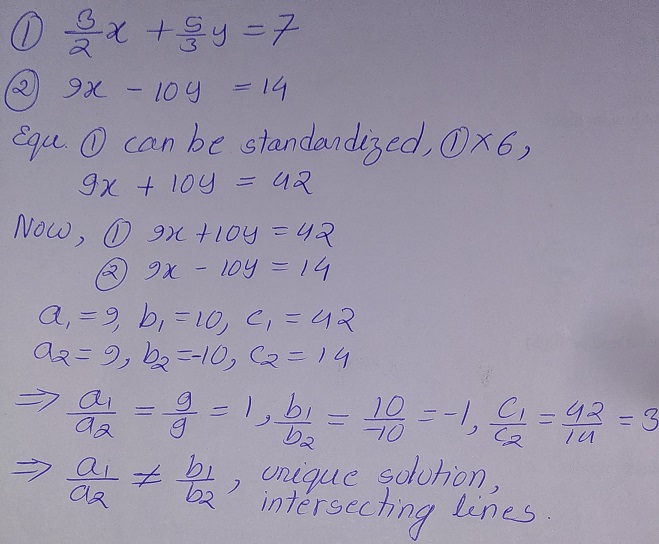 ① 3/2 x + 5/3 y = 7
② 9x - 10y = 14
Equ. ① can be standardized, ① × 6,
9x + 10y = 42
Now, ① 9x + 10y = 42
② 9x - 10y = 14
a₁ = 9, b₁ = 10, c₁ = 42
a₂ = 9, b₂ = -10, c₂ = 14
⇒ a₁/a₂ = 9/9 = 1, b₁/b₂ = 10/-10 = -1, c₁/c₂ = 42/14 = 3
⇒ a₁/a₂ ≠ b₁/b₂, unique solution,
intersecting lines.